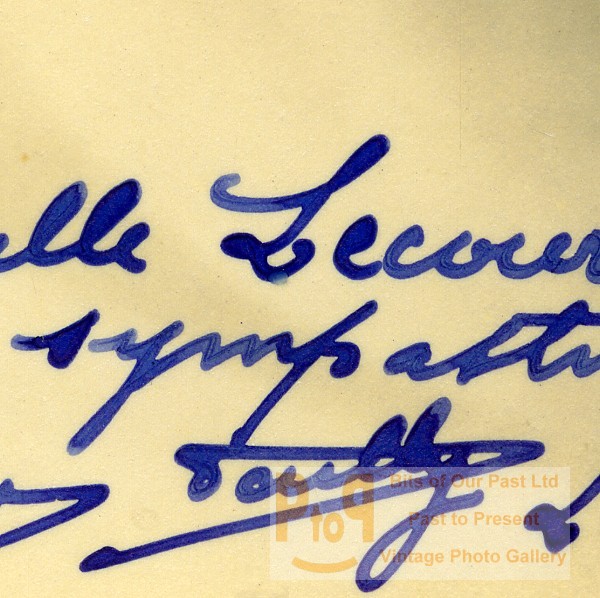 elle Lecour
sympathi
Bits of Our Past Ltd
PtoP
Past to Present
Vintage Photo Gallery